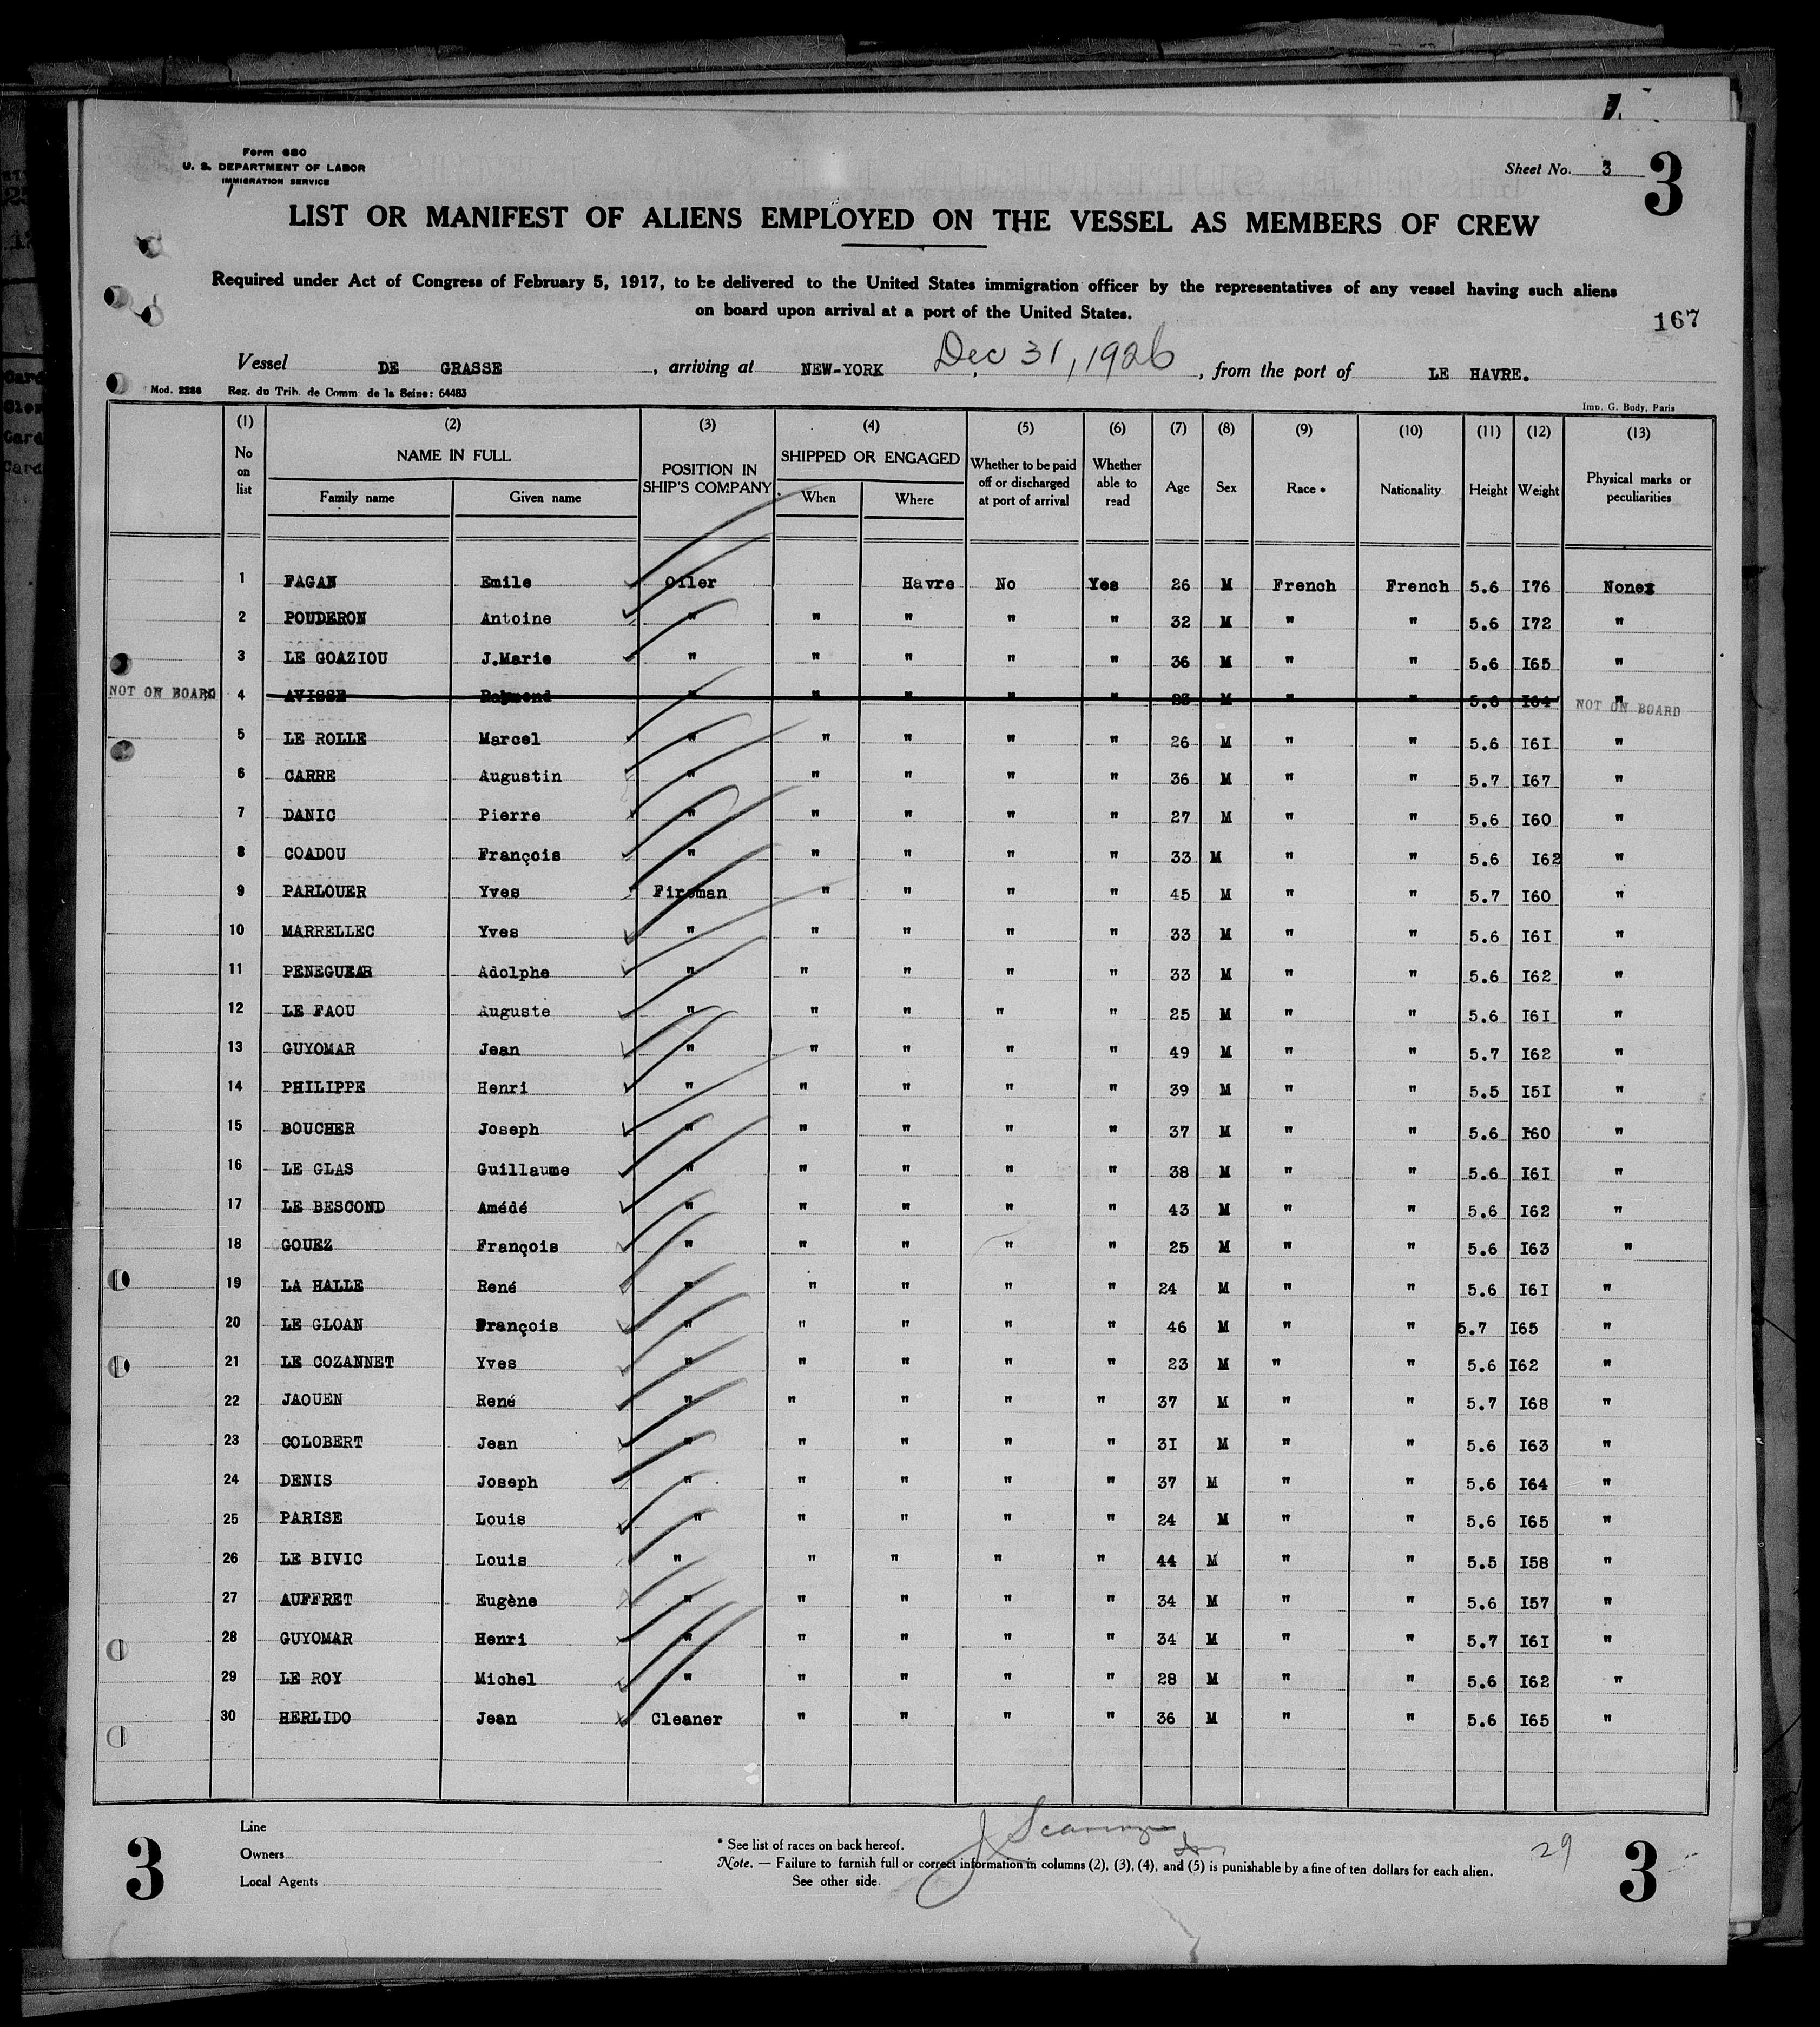 Form 680
U. S. DEPARTMENT OF LABOR
IMMIGRATION SERVICE
Sheet No. 3
3
LIST OR MANIFEST OF ALIENS EMPLOYED ON THE VESSEL AS MEMBERS OF CREW
Required under Act of Congress of February 5, 1917, to be delivered to the United States immigration officer by the representatives of any vessel having such aliens
on board upon arrival at a port of the United States.
167
Vessel DE GRASSE , arriving at NEW-YORK Dec 31, 1926 , from the port of LE HAVRE.
Mod. 2286 Reg. du Trib. de Comm de la Seine: 64483
Imp. G. Budy, Paris
(1) (2) (3) (4) (5) (6) (7) (8) (9) (10) (11) (12) (13)
No on list NAME IN FULL POSITION IN SHIP'S COMPANY SHIPPED OR ENGAGED Whether to be paid off or discharged at port of arrival Whether able to read Age Sex Race * Nationality Height Weight Physical marks or peculiarities
Family name Given name When Where
1 FAGAN Emile Oiler Havre No Yes 26 M French French 5.6 I76 None
2 POUDERON Antoine " " " " " 32 M " " 5.6 I72 "
3 LE GOAZIOU J.Marie " " " " " 36 M " " 5.6 I65 "
NOT ON BOARD 4 AVISSE Raymond " " " " " 23 M " " 5.6 I64 " NOT ON BOARD
5 LE ROLLE Marcel " " " " " 26 M " " 5.6 I6I "
6 CARRE Augustin " " " " " 36 M " " 5.7 I67 "
7 DANIC Pierre " " " " " 27 M " " 5.6 I60 "
8 COADOU François " " " " " 33 M " " 5.6 I62 "
9 PARLOUER Yves Fireman " " " " 45 M " " 5.7 I60 "
10 MARRELLEC Yves " " " " " 33 M " " 5.6 I6I "
11 PENEGUEAR Adolphe " " " " " 33 M " " 5.6 I62 "
12 LE FAOU Auguste " " " " " 25 M " " 5.6 I6I "
13 GUYOMAR Jean " " " " " 49 M " " 5.7 I62 "
14 PHILIPPE Henri " " " " " 39 M " " 5.5 I5I "
15 BOUCHER Joseph " " " " " 37 M " " 5.6 I60 "
16 LE GLAS Guillaume " " " " " 38 M " " 5.6 I6I "
17 LE BESCOND Amédé " " " " " 43 M " " 5.6 I62 "
18 GOUEZ François " " " " " 25 M " " 5.6 I63 "
19 LA HALLE René " " " " " 24 M " " 5.6 I6I "
20 LE GLOAN François " " " " " 46 M " " 5.7 I65 "
21 LE COZANNET Yves " " " " " 23 M " " 5.6 I62 "
22 JAOUEN René " " " " " 37 M " " 5.7 I68 "
23 COLOBERT Jean " " " " " 3I M " " 5.6 I63 "
24 DENIS Joseph " " " " " 37 M " " 5.6 I64 "
25 PARISE Louis " " " " " 24 M " " 5.6 I65 "
26 LE BIVIC Louis " " " " " 44 M " " 5.5 I58 "
27 AUFFRET Eugène " " " " " 34 M " " 5.6 I57 "
28 GUYOMAR Henri " " " " " 34 M " " 5.7 I6I "
29 LE ROY Michel " " " " " 28 M " " 5.6 I62 "
30 HERLIDO Jean Cleaner " " " " 36 M " " 5.6 I65 "
Line
Owners
Local Agents
* See list of races on back hereof.
Note. — Failure to furnish full or correct information in columns (2), (3), (4), and (5) is punishable by a fine of ten dollars for each alien.
See other side.
29
3
3